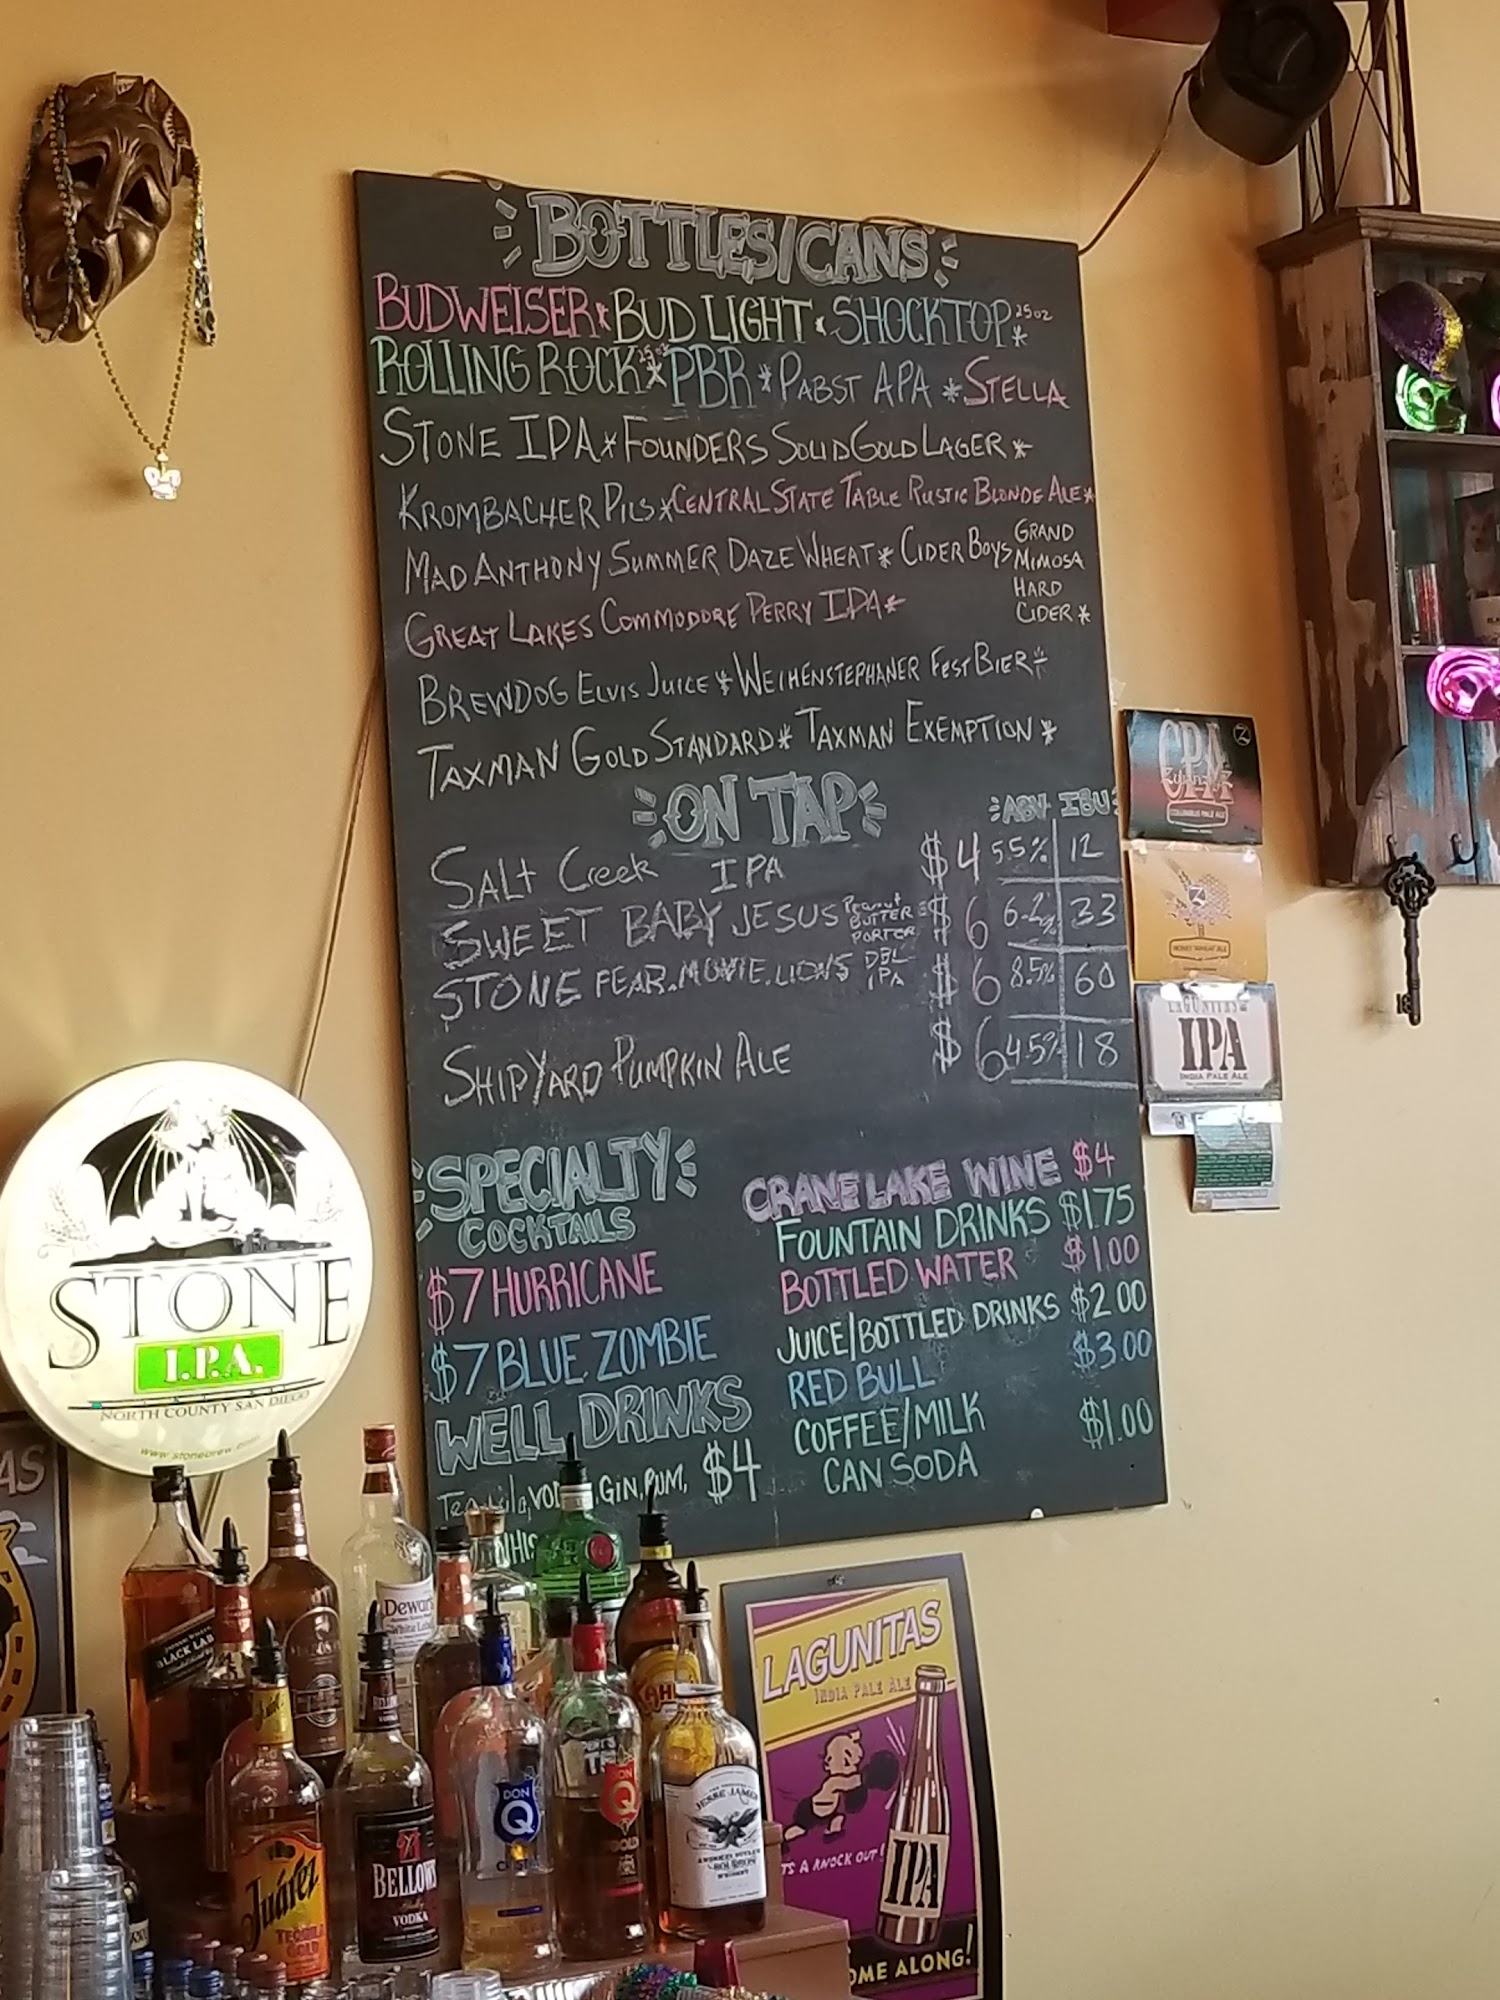 BOTTLES/CANS
BUDWEISER * BUD LIGHT * SHOCKTOP 25oz *
ROLLING ROCK 25oz * PBR * PABST APA * STELLA
STONE IPA * FOUNDERS SOLID GOLD LAGER *
KROMBACHER PILS * CENTRAL STATE TABLE RUSTIC BLONDE ALE *
MAD ANTHONY SUMMER DAZE WHEAT * CIDER BOYS GRAND MIMOSA HARD CIDER *
GREAT LAKES COMMODORE PERRY IPA *
BREWDOG ELVIS JUICE * WEIHENSTEPHANER FEST BIER *
TAXMAN GOLD STANDARD * TAXMAN EXEMPTION *
ON TAP ABV IBU
SALT Creek IPA $4 5.5% 12
SWEET BABY JESUS PEANUT BUTTER PORTER $6 6.2% 33
STONE FEAR.MOVIE.LIONS DBL IPA $6 8.5% 60
SHIPYARD PUMPKIN ALE $6 4.5% 18
SPECIALTY
COCKTAILS
$7 HURRICANE
$7 BLUE ZOMBIE
WELL DRINKS
Tequila, VODKA, GIN, RUM, $4
WHIS
CRANE LAKE WINE $4
FOUNTAIN DRINKS $1.75
BOTTLED WATER $1.00
JUICE/BOTTLED DRINKS $2.00
RED BULL $3.00
COFFEE/MILK $1.00
CAN SODA
CPA
COLUMBUS PALE ALE
HONEY WHEAT ALE
LAGUNITAS
IPA
INDIA PALE ALE
STONE
I.P.A.
NORTH COUNTY SAN DIEGO
www.stonebrew.com
AS
BLACK LAB
Dewar's
White Label
Juárez
TEQUILA
GOLD
BELLOWS
VODKA
DON
Q
DON
Q
GOLD
KAH
JESSE JAMES
BOURBON
WHISKEY
LAGUNITAS
INDIA PALE ALE
TS A KNOCK OUT!
IPA
OME ALONG!